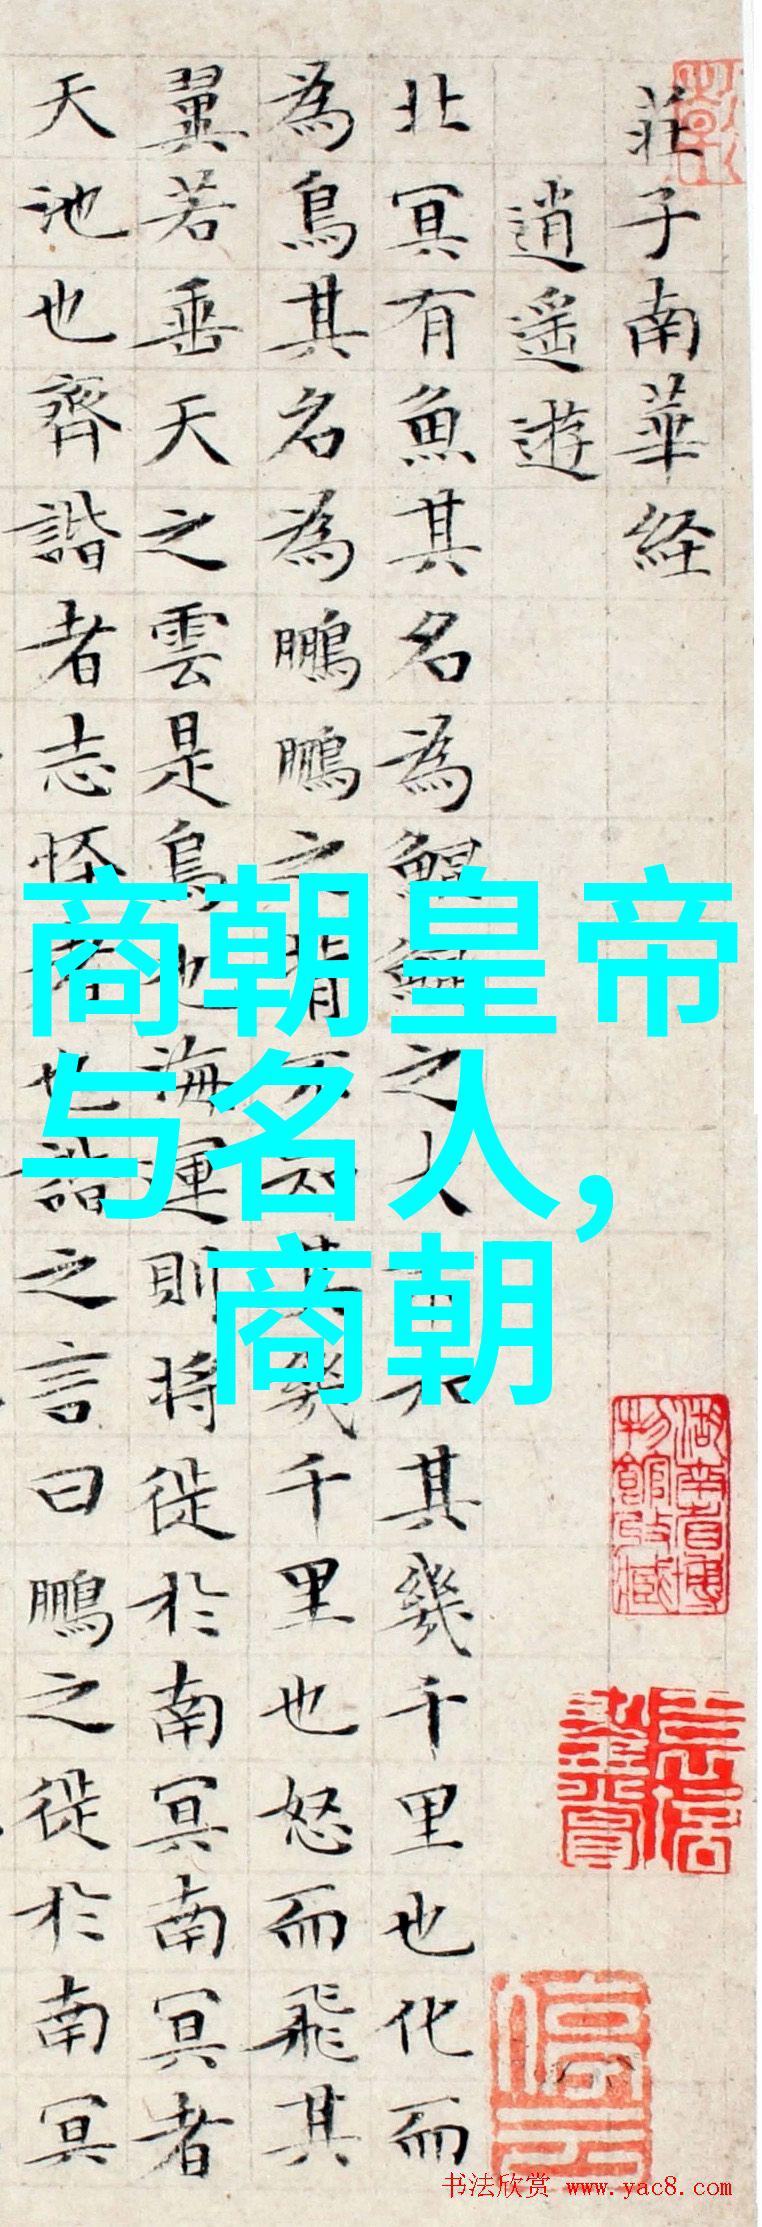 莊子南華経
逍遥遊
北冥有魚其名為鯤鯤之大不知其幾千里也化而
為鳥其名為鵬鵬之背不知其幾千里也怒而飛其
翼若垂天之雲是鳥也海運則将徙於南冥南冥者
天池也齊諧者志怪者也諧之言曰鵬之徙於南冥
商朝皇帝
与名人,
商朝
湖南省博
物館收藏
停云
书法欣赏 www.yac8.com